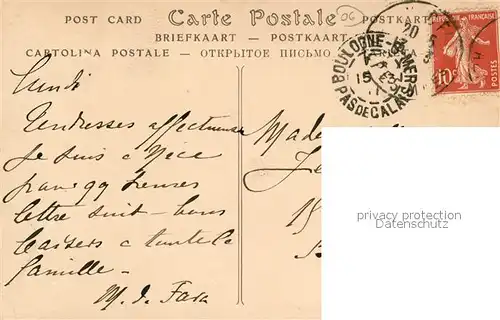 POST CARD Carte Postale POSTKARTE
BRIEFKAART — POSTKAART
CARTOLINA POSTALE — ОТКРЫТОЕ ПИСЬМО
06
BOULOGNE-S-MER
PAS DE CALAIS
15
10c
POSTES
Lundi
Tendresses affectueuses
Je suis à Nice
pour 99 heures
lettre suit - bons
baisers à toute la
famille -
M. de Fara
Made
Je
15
privacy protection
Datenschutz